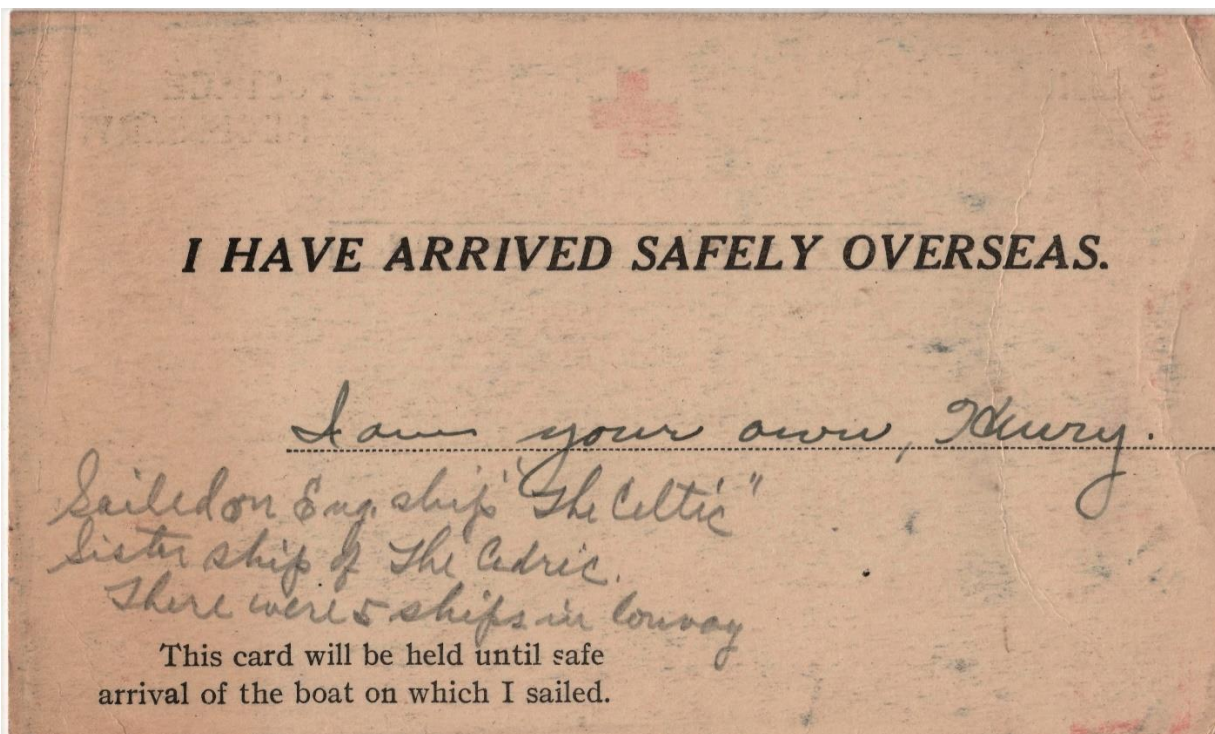 I HAVE ARRIVED SAFELY OVERSEAS.
I am your own, Henry.
Sailed on Eng. ship "The Celtic"
Sister ship of The Cedric.
There were 5 ships in Convoy
This card will be held until safe
arrival of the boat on which I sailed.